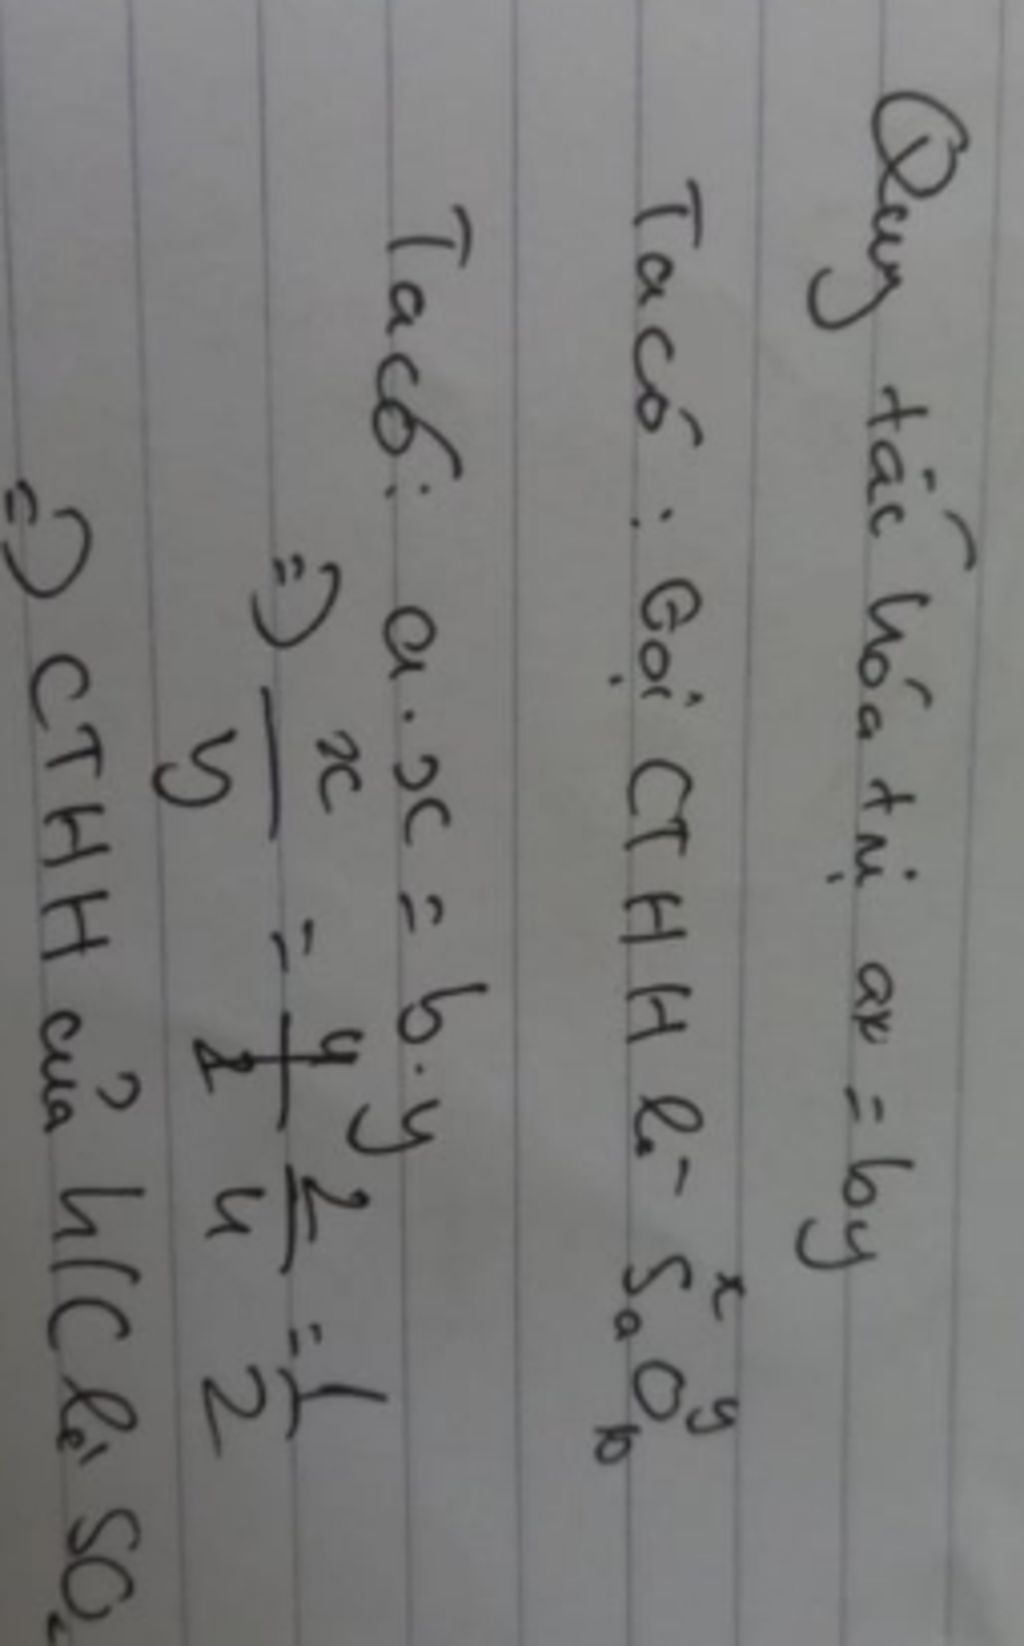 Quy tắc hóa trị ax = by
Ta có : Gọi CTHH là SₐˣO_bʸ
Ta có : a.x = b.y
=> x/y = 2/4 = 1/2
=> CTHH của h/c là SO₂